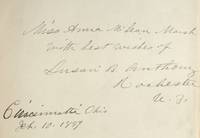 Miss Anna McLean Marsh
with best wishes of
Susan B. Anthony
Rochester
N. Y.
Cincinnatti Ohio
Feb. 10. 1879